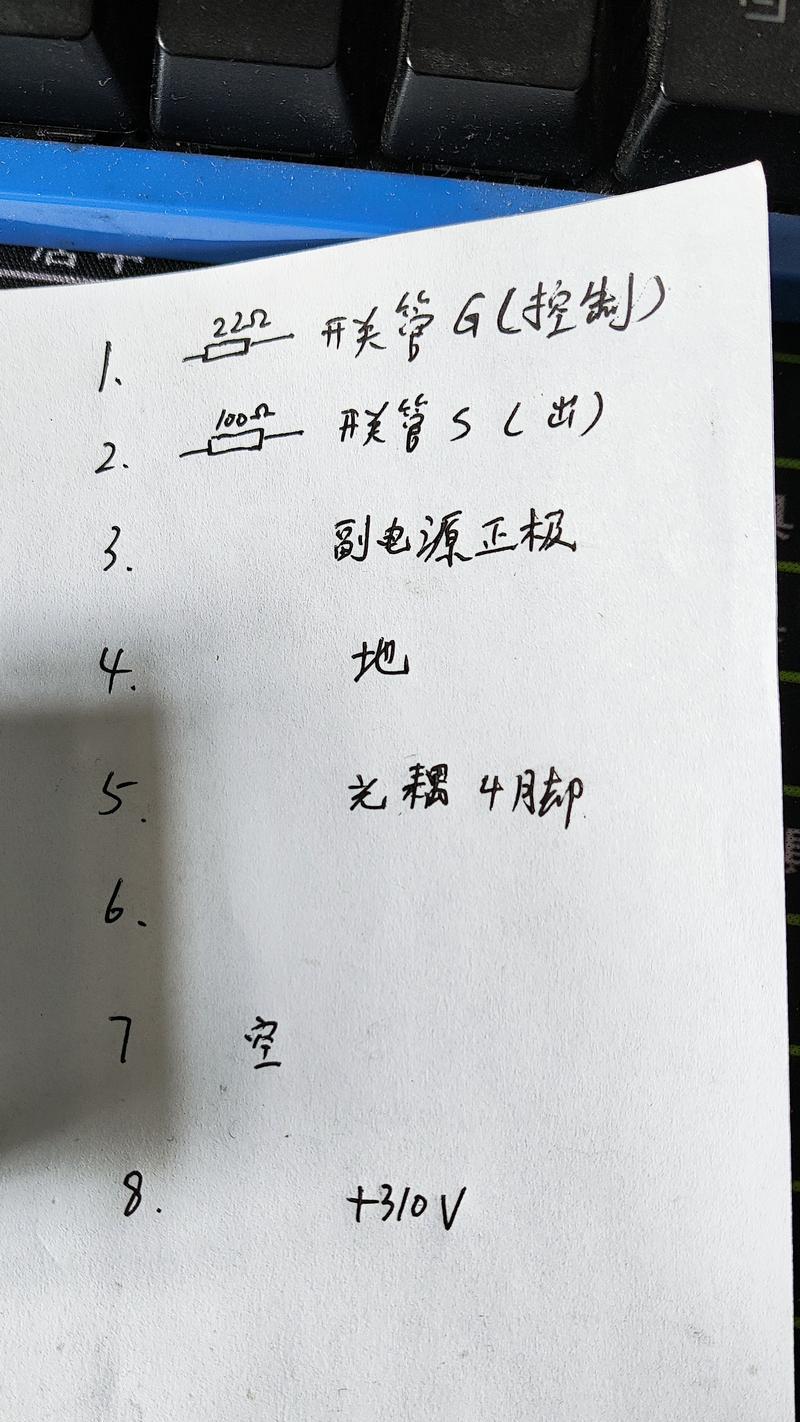 1. 22Ω 开关管 G(控制)
2. 100Ω 开关管 S(出)
3. 副电源正极
4. 地
5. 光耦 4脚
6.
7 空
8. +310V